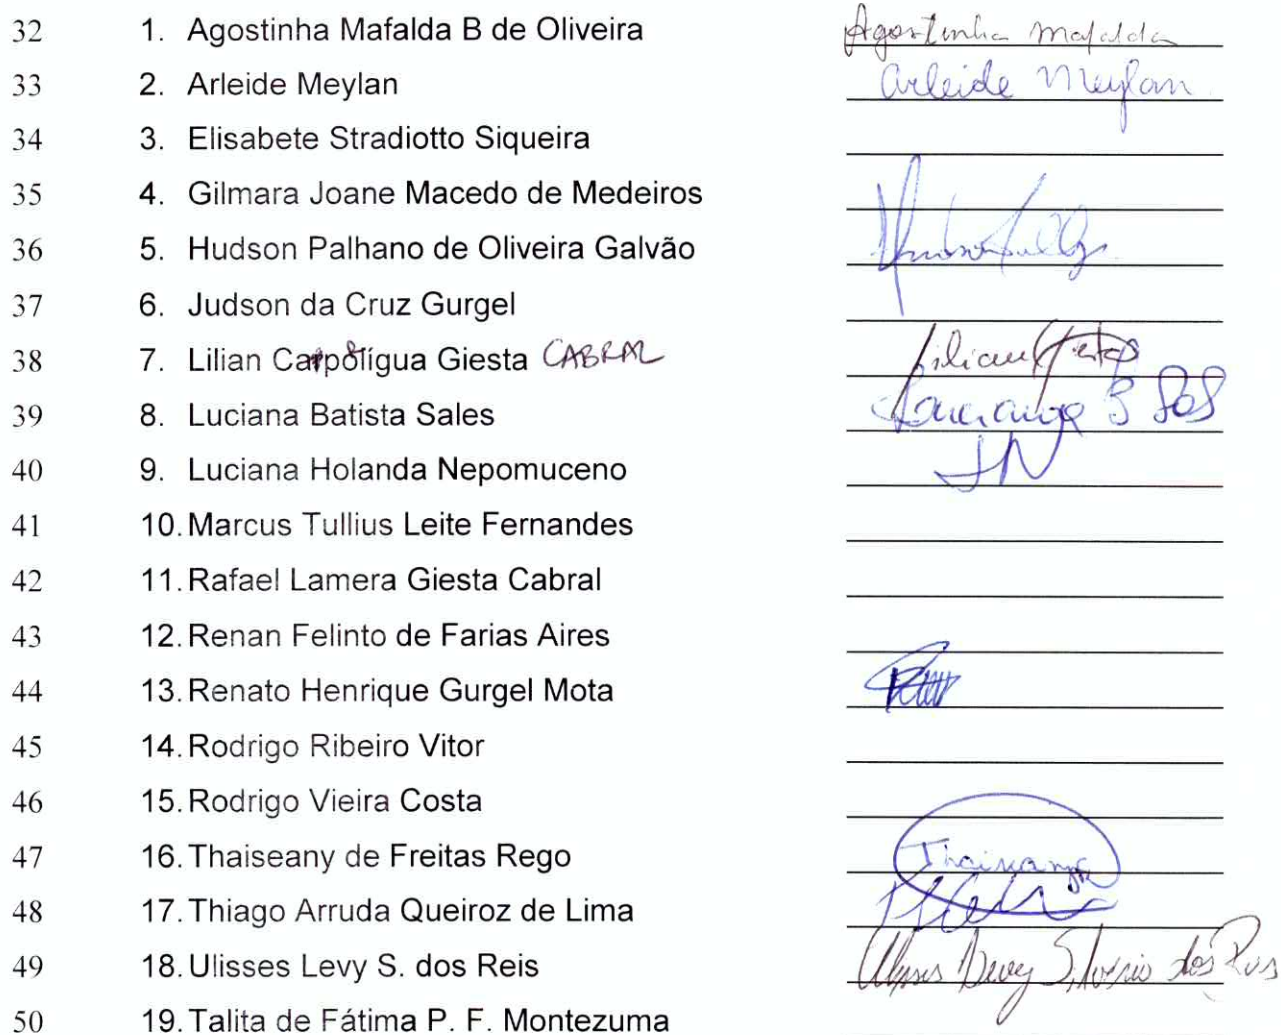 32 1. Agostinha Mafalda B de Oliveira Agostinha Mafalda
33 2. Arleide Meylan Arleide Meylan
34 3. Elisabete Stradiotto Siqueira
35 4. Gilmara Joane Macedo de Medeiros
36 5. Hudson Palhano de Oliveira Galvão
37 6. Judson da Cruz Gurgel
38 7. Lilian Giesta CABRAL Lilian Giesta
39 8. Luciana Batista Sales
40 9. Luciana Holanda Nepomuceno LN
41 10. Marcus Tullius Leite Fernandes
42 11. Rafael Lamera Giesta Cabral
43 12. Renan Felinto de Farias Aires
44 13. Renato Henrique Gurgel Mota
45 14. Rodrigo Ribeiro Vitor
46 15. Rodrigo Vieira Costa
47 16. Thaiseany de Freitas Rego Thaiseany
48 17. Thiago Arruda Queiroz de Lima
49 18. Ulisses Levy S. dos Reis Ulisses Levy Silvério dos Reis
50 19. Talita de Fátima P. F. Montezuma